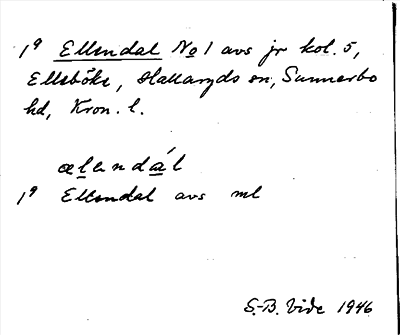 1⁹ Ellendal No 1 avs jr kol. 5,
Ellsböke, Hallaryds sn, Sunnerbo
hd, Kron. l.
ælendál
1⁹ Ellendal avs ml
S.-B. Vide 1946